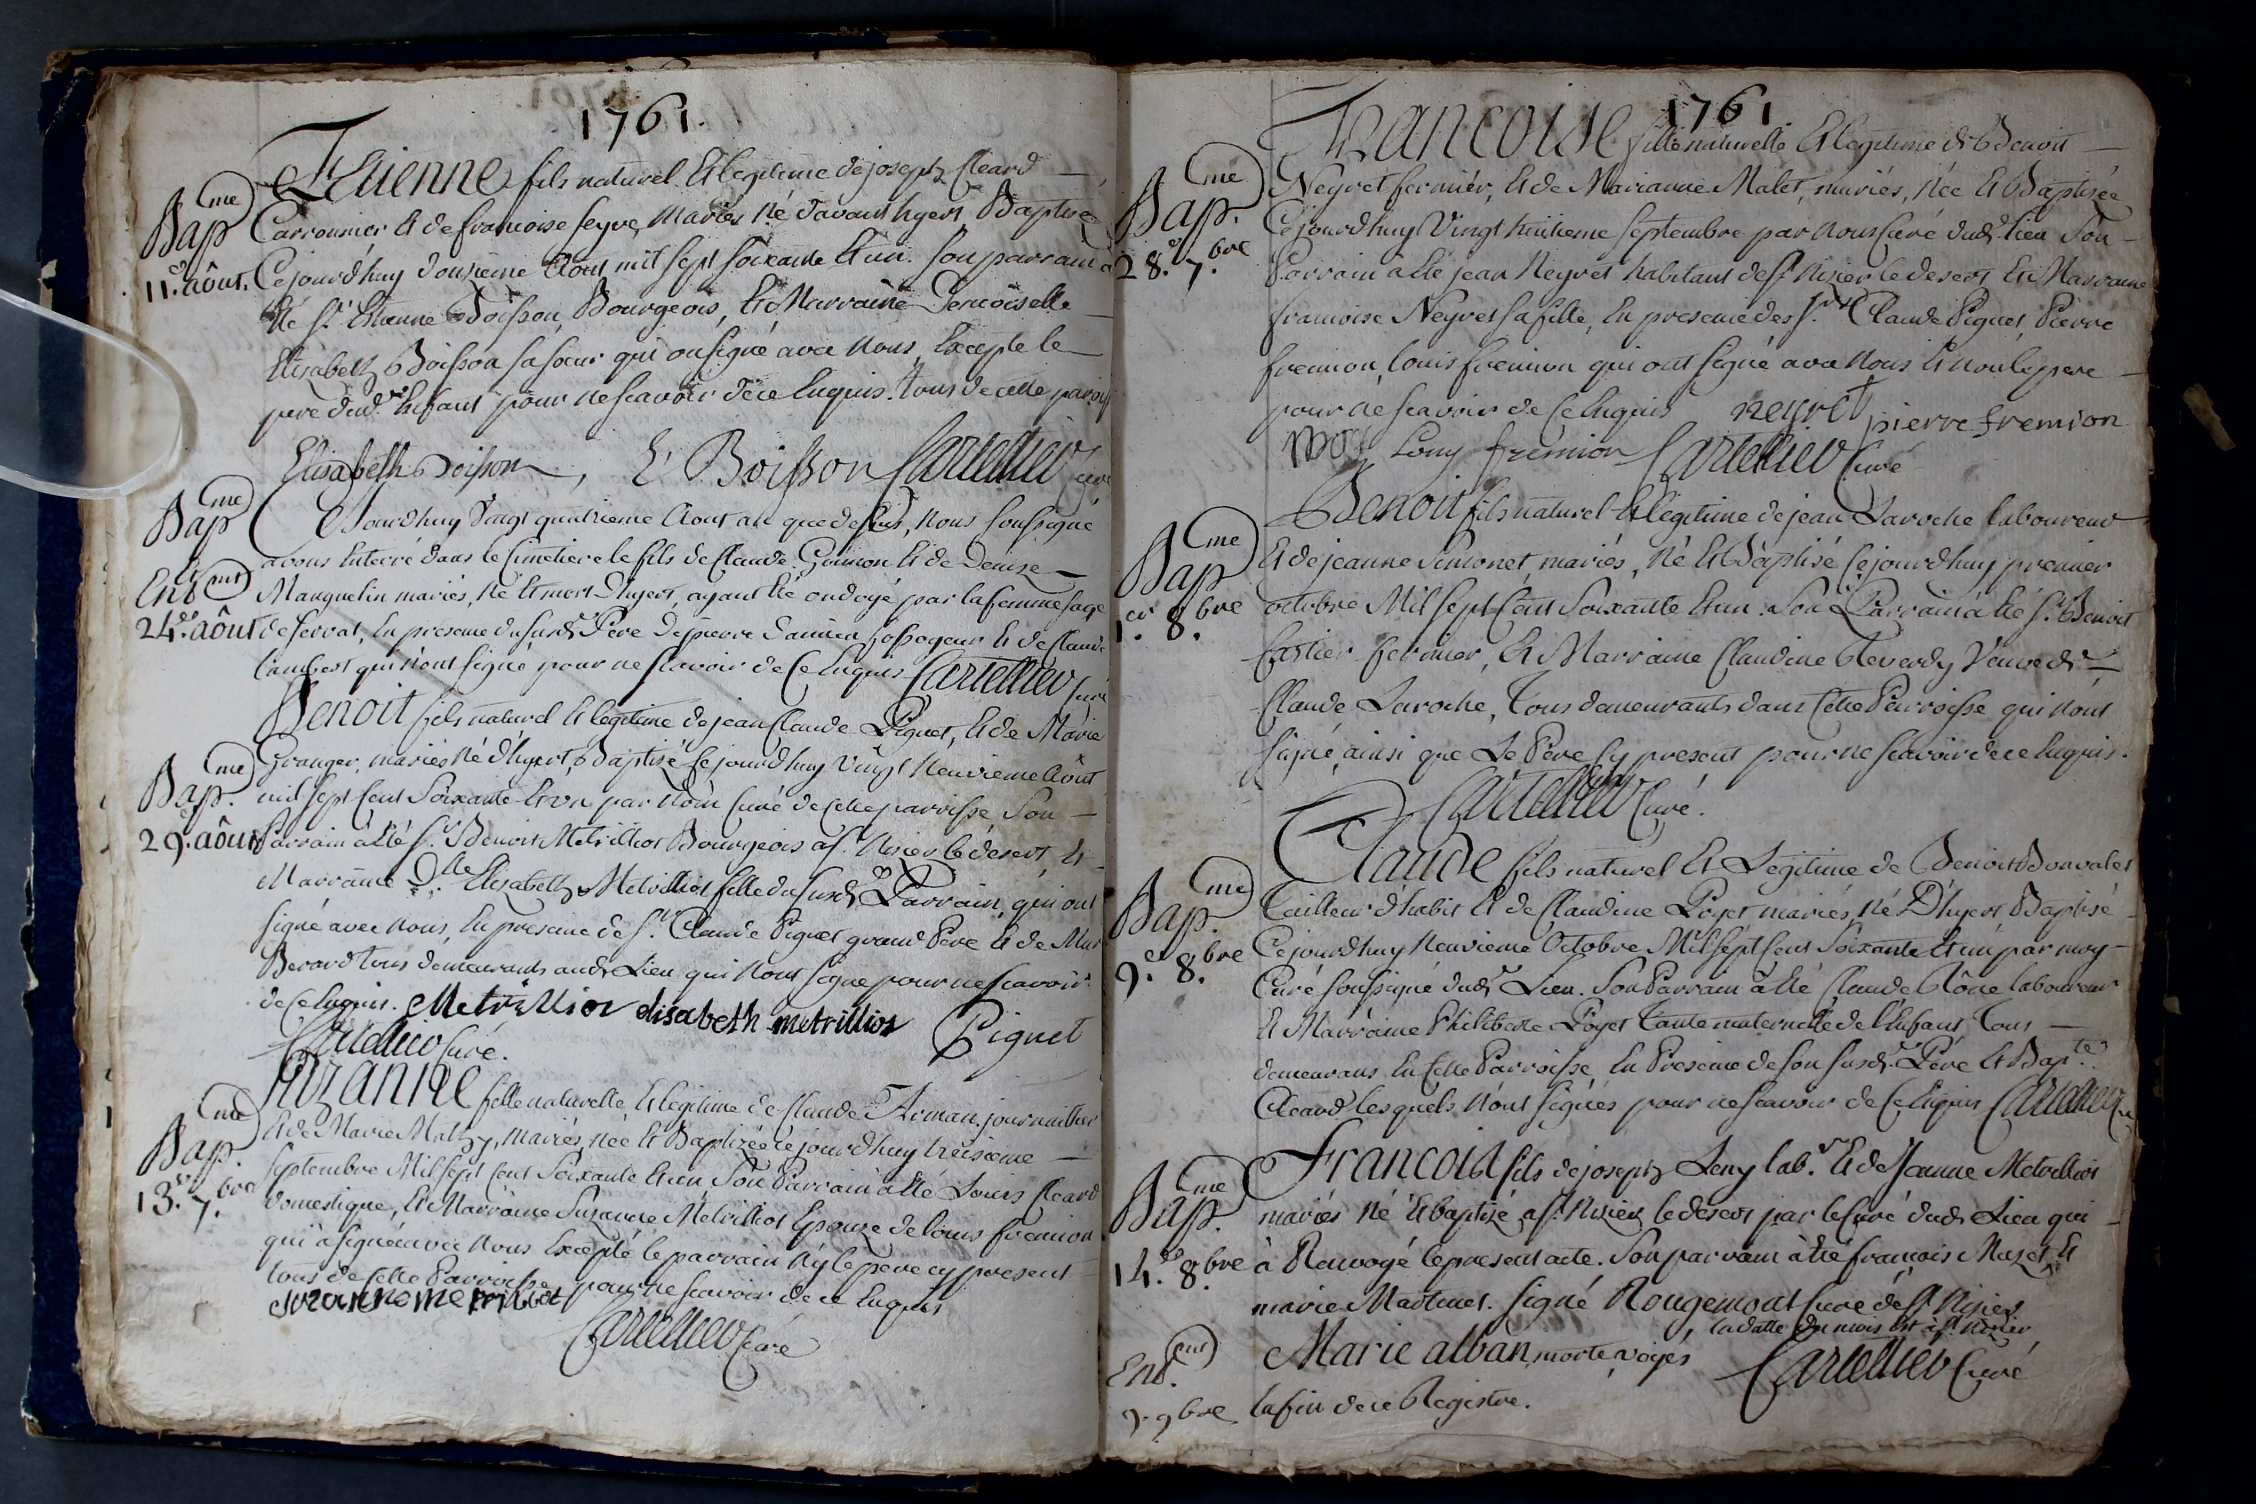 1761.
Etienne fils naturel Et legitime de joseph Cleard
Bap.me Carronnier et de francoise seyve, mariés Né d'avant hyert Baptisé
11.e aôut. Cejourdhuy Douzieme Aout mil sept soixante Et un. son parrain à
Eté Sr Etienne Boisson, Bourgeois, Et Marraine Demoiselle
Elisabeth Boisson sa soeur qui on signé avec Nous, Excepté le
pere dud. Enfant pour ne scavoir de ce Enquis. tous de cette paroiss
Elisabeth Boisson, E. Boisson Cartellier curé
Bap.me Ce Jourdhuy Vingt quatrieme Aout an que dessus, Nous soussigné
avons Enterré dans le simetiere le fils de Claude Guinon Et de Denize
Ent.ent Manguelin mariés, Né Et mort D'hyert, ayant Eté ondoyé par la femme sage
24.e aôut de servat, En presence du susd. Pere De pierre Damien fossoyeur Et de Claude
Lambert qui n'ont signé pour ne scavoir de Ce Enquis Cartellier curé
Benoit fils naturel Et legitime de jean Claude Piguet, Et de Marie
Bap.me Granger, mariés Né d'hyert, Baptisé Ce jourdhuy Vingt Neuvieme Aôut
mil sept Cent Soixante Et un par Nous Curé de Cette parroisse Son
29.e aôut Parrain à Eté Sr. Benoit Metrilliot Bourgeois a St. Nizier le desert, Et
Marraine Dlle. Elisabeth Metrilliot fille du susd. Parrain, qui ont
signé avec Nous, En presence de Sr. Claude Piguet grand Pere Et de
Berard tous demeurants aud. Lieu qui N'ont signé pour ne scavoir
de Ce Enquis. Metrilliot elisabeth metrilliot Piguet
Cartellier Curé.
Suzanne fille naturelle Et legitime de Claude Arman journallier
Bap.me Et de Marie Mathy, Mariés, Née Et Baptizée Ce jourdhuy treizieme
13.e 7.bre Septembre Mil sept Cent Soixante Et un Son Parrain à Eté Louis Cleard
Domestique, Et Marraine Suzanne Metrilliot Epouze de louis fremion
qui à signé avec Nous Excepté le parrain Ny le pere cy present
tous de Cette Parroisse, pour ne scavoir de ce Enquis
suzanne metrilliot
Cartellier Curé
1761
Francoise fille naturelle Et legitime de Benoit
Bap.me Neyret fermier, Et de Marianne Malet, mariés, Née Et Baptisée
28.e 7.bre Cejourdhuy Vingt huitieme septembre par Nous Curé dud. lieu Son
Parrain à Eté jean Neyret habitant de St. Nizier le desert Et Marraine
francoise Neyret sa fille, En presence des Srs. Claude Piguet, Pierre
fremion, louis fremion qui ont signé avec Nous Et Non le pere
pour ne scavoir de Ce Enquis neyret pierre fremion
Louy fremion Cartellier Curé
Benoit fils naturel Et legitime de jean Laroche laboureur
Bap.me Et de jeanne Simonet, mariés, Né Et Baptisé Ce jourdhuy premier
1.er 8.bre octobre Mil sept Cent Soixante Et un. Son Parrain à Eté Sr. Benoit
Cartier fermier, Et Marraine Claudine Teverdy Veuve de
Claude Laroche, Tous demeurants dans Cette Parroisse qui N'ont
signé, ainsi que Le Père Cy present pour ne scavoir de ce Enquis.
Cartellier Curé.
Claude fils naturel Et Legitime de Benoit Bonvalet
Bap.me Tailleur d'habit Et de Claudine Poyet mariés, Né D'hyert Baptisé
9.e 8.bre Ce jourdhuy Neuvieme Octobre Mil sept Cent Soixante Et un par moy
Curé soussigné dud. Lieu. Son Parrain à Eté Claude Rône laboureur
Et Marraine Philiberte Poyet Tante maternelle de l'Enfant, Tous
demeurans En Cette Parroisse, En Presence de son susd. Père Et Bap.te
Cleard lesquels N'ont signés pour ne scavoir de Ce Enquis Cartellier Cu
Francois fils de joseph Leny lab.r Et de Jeanne Metrilliot
Bap.me mariés Né Et baptizé a St. Nizier le desert par le Curé dud. Lieu qui
14.e 8.bre à Renvoyé le present acte. Son parrain à Eté françois Muzet Et
marie Martinet. signé Rougemont Curé de St. Nizier
la datte du mois est à St. Nizier
Ent.ent Marie alban, morte, voyés Cartellier Curé
9. 9bre la fin de ce Registre.